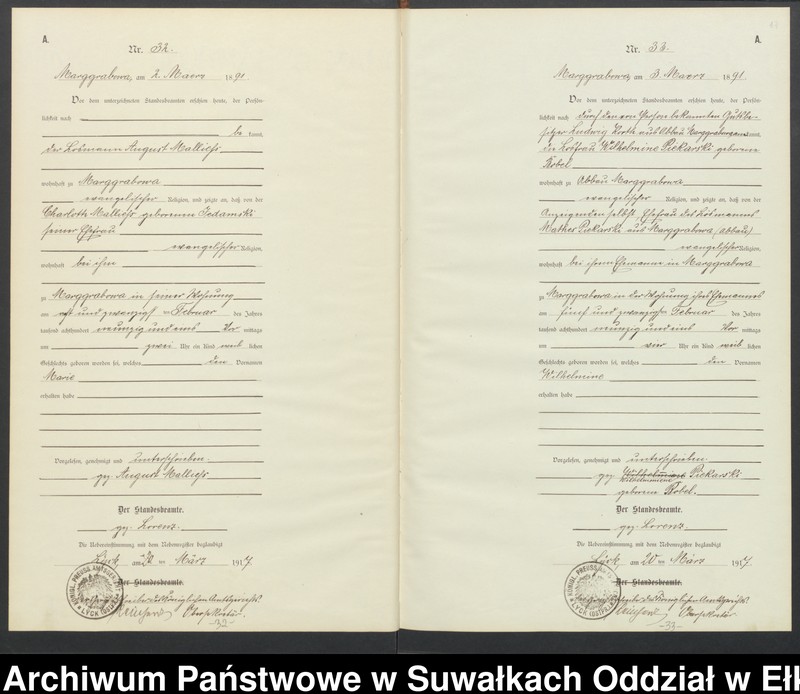 A.
Nr. 32.
Marggrabowa, am 2. Maerz 1891.
Vor dem unterzeichneten Standesbeamten erschien heute, der Persön-
lichkeit nach
be kannt,
der Losmann August Malliess
wohnhaft zu Marggrabowa
evangelischer Religion, und zeigte an, daß von der
Charlotte Malliess geborenen Jedamski
seiner Ehefrau
evangelischer Religion,
wohnhaft bei ihm
zu Marggrabowa in seiner Wohnung
am und zwanzigsten Februar des Jahres
tausend achthundert neunzig und eins Vor mittags
um zwei Uhr ein Kind weib lichen
Geschlechts geboren worden sei, welches den Vornamen
Marie
erhalten habe
Vorgelesen, genehmigt und unterschrieben.
gez. August Malliess
Der Standesbeamte.
gez. Lorenz.
Die Uebereinstimmung mit dem Nebenregister beglaubigt
Lyck am 20ten März 1917.
Der Standesbeamte.
des Königlichen Amtsgerichts.
Obersekretär.
KÖNIGL. PREUSS. AMTSGERICHT
LYCK (OSTPR.)
-32-
A.
Nr. 33.
Marggrabowa, am 3. Maerz 1891.
Vor dem unterzeichneten Standesbeamten erschien heute, der Persön-
lichkeit nach durch den von Person bekannten Gutsbe-
sitzer Ludwig aus Abbau Marggrabowa kannt,
die Losfrau Wilhelmine Piekarski geborene
Kobel
wohnhaft zu Abbau Marggrabowa
evangelischer Religion, und zeigte an, daß von der
Anzeigenden selbst Ehefrau des Losmanns
Mathes Piekarski aus Marggrabowa (Abbau)
evangelischer Religion,
wohnhaft bei ihrem Ehemanne in Marggrabowa
zu Marggrabowa in der Wohnung ihres Ehemannes
am fünf und zwanzigsten Februar des Jahres
tausend achthundert neunzig und eins Vor mittags
um vier Uhr ein Kind weib lichen
Geschlechts geboren worden sei, welches den Vornamen
Wilhelmine
erhalten habe
Vorgelesen, genehmigt und unterschrieben.
gez. Wilhelmine Piekarski
geborene Kobel.
Der Standesbeamte.
gez. Lorenz.
Die Uebereinstimmung mit dem Nebenregister beglaubigt
Lyck am 20ten März 1917.
Der Standesbeamte.
des Königlichen Amtsgerichts.
Obersekretär
KÖNIGL. PREUSS. AMTSGERICHT
LYCK (OSTPR.)
-33-
Archiwum Państwowe w Suwałkach Oddział w Eł